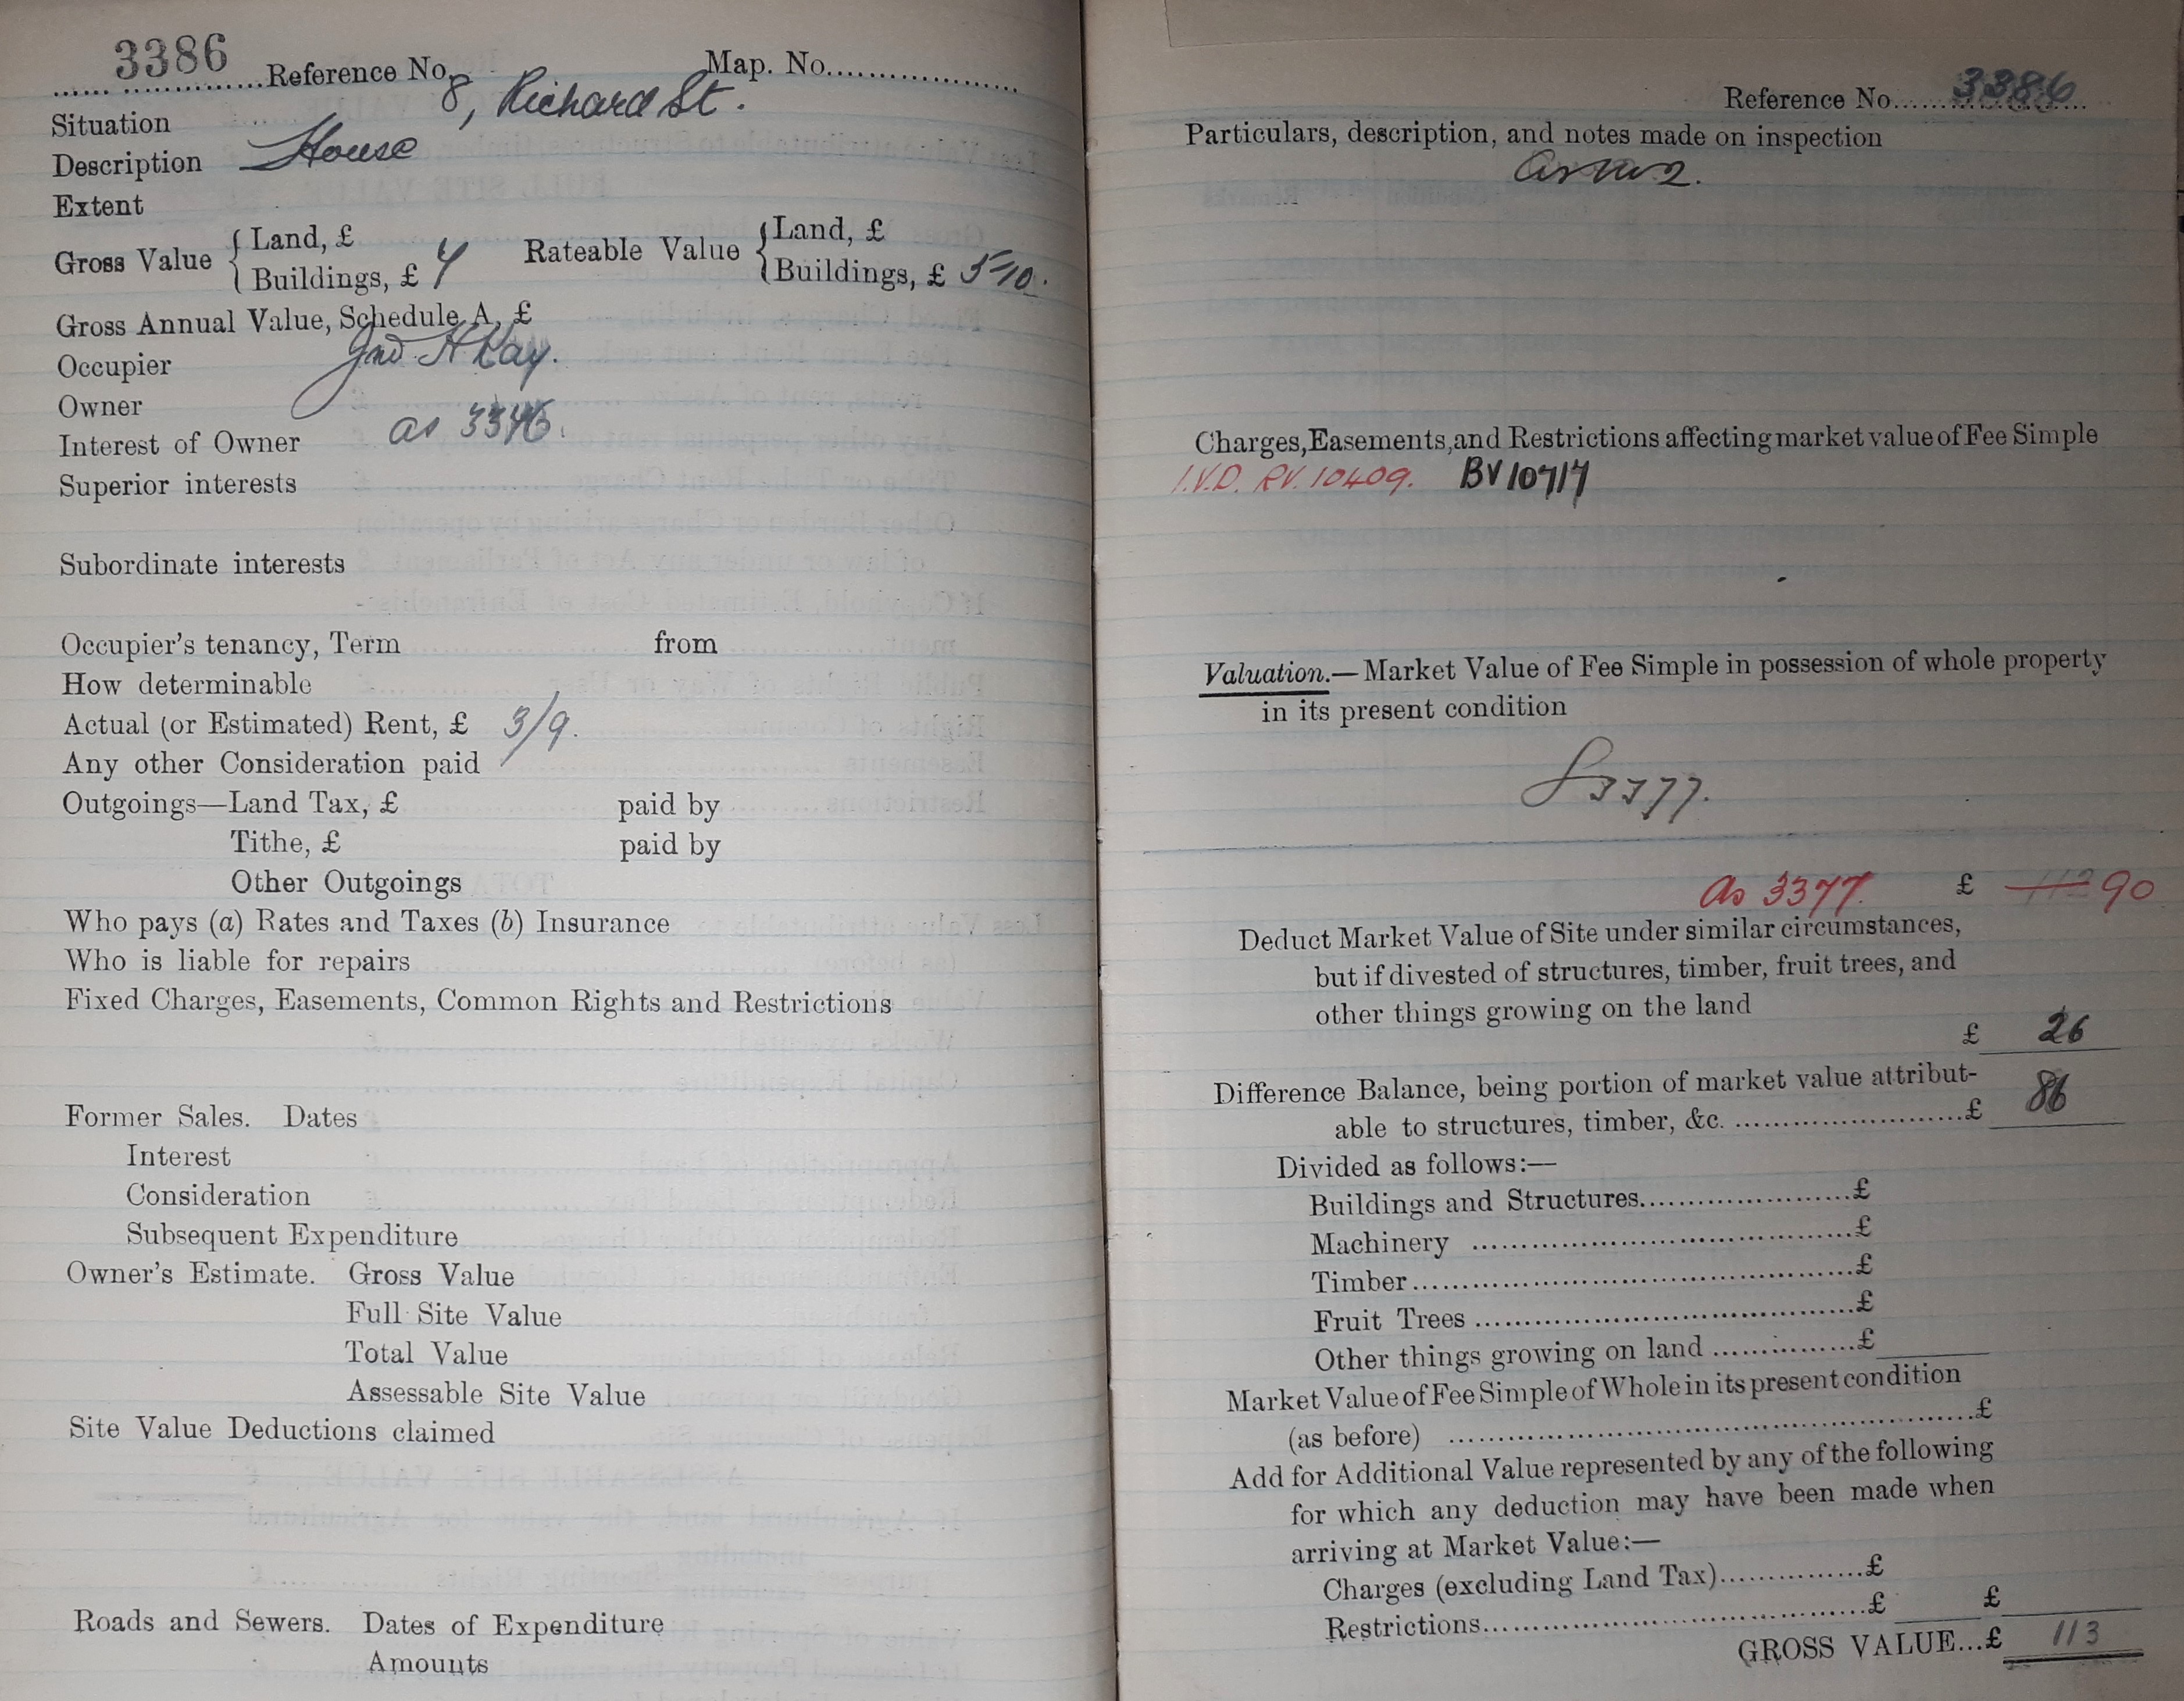 3386 Reference No. Map. No.
Situation 8, Richard St.
Description House
Extent
Gross Value { Land, £ Rateable Value { Land, £
Buildings, £ 7 Buildings, £ 5-10.
Gross Annual Value, Schedule A, £
Occupier Jno. H Kay.
Owner
Interest of Owner as 3346.
Superior interests
Subordinate interests
Occupier's tenancy, Term from
How determinable
Actual (or Estimated) Rent, £ 3/9.
Any other Consideration paid
Outgoings—Land Tax, £ paid by
Tithe, £ paid by
Other Outgoings
Who pays (a) Rates and Taxes (b) Insurance
Who is liable for repairs
Fixed Charges, Easements, Common Rights and Restrictions
Former Sales. Dates
Interest
Consideration
Subsequent Expenditure
Owner's Estimate. Gross Value
Full Site Value
Total Value
Assessable Site Value
Site Value Deductions claimed
Roads and Sewers. Dates of Expenditure
Amounts
Reference No. 3386
Particulars, description, and notes made on inspection
Charges, Easements, and Restrictions affecting market value of Fee Simple
I.V.D. RV. 10409. BV 10717
Valuation.—Market Value of Fee Simple in possession of whole property
in its present condition
3377.
As 3377. £ 90
Deduct Market Value of Site under similar circumstances,
but if divested of structures, timber, fruit trees, and
other things growing on the land
£ 26
Difference Balance, being portion of market value attribut-
able to structures, timber, &c. £ 86
Divided as follows:—
Buildings and Structures £
Machinery £
Timber £
Fruit Trees £
Other things growing on land £
Market Value of Fee Simple of Whole in its present condition
(as before) £
Add for Additional Value represented by any of the following
for which any deduction may have been made when
arriving at Market Value:—
Charges (excluding Land Tax) £
Restrictions £ £
GROSS VALUE...£ 113